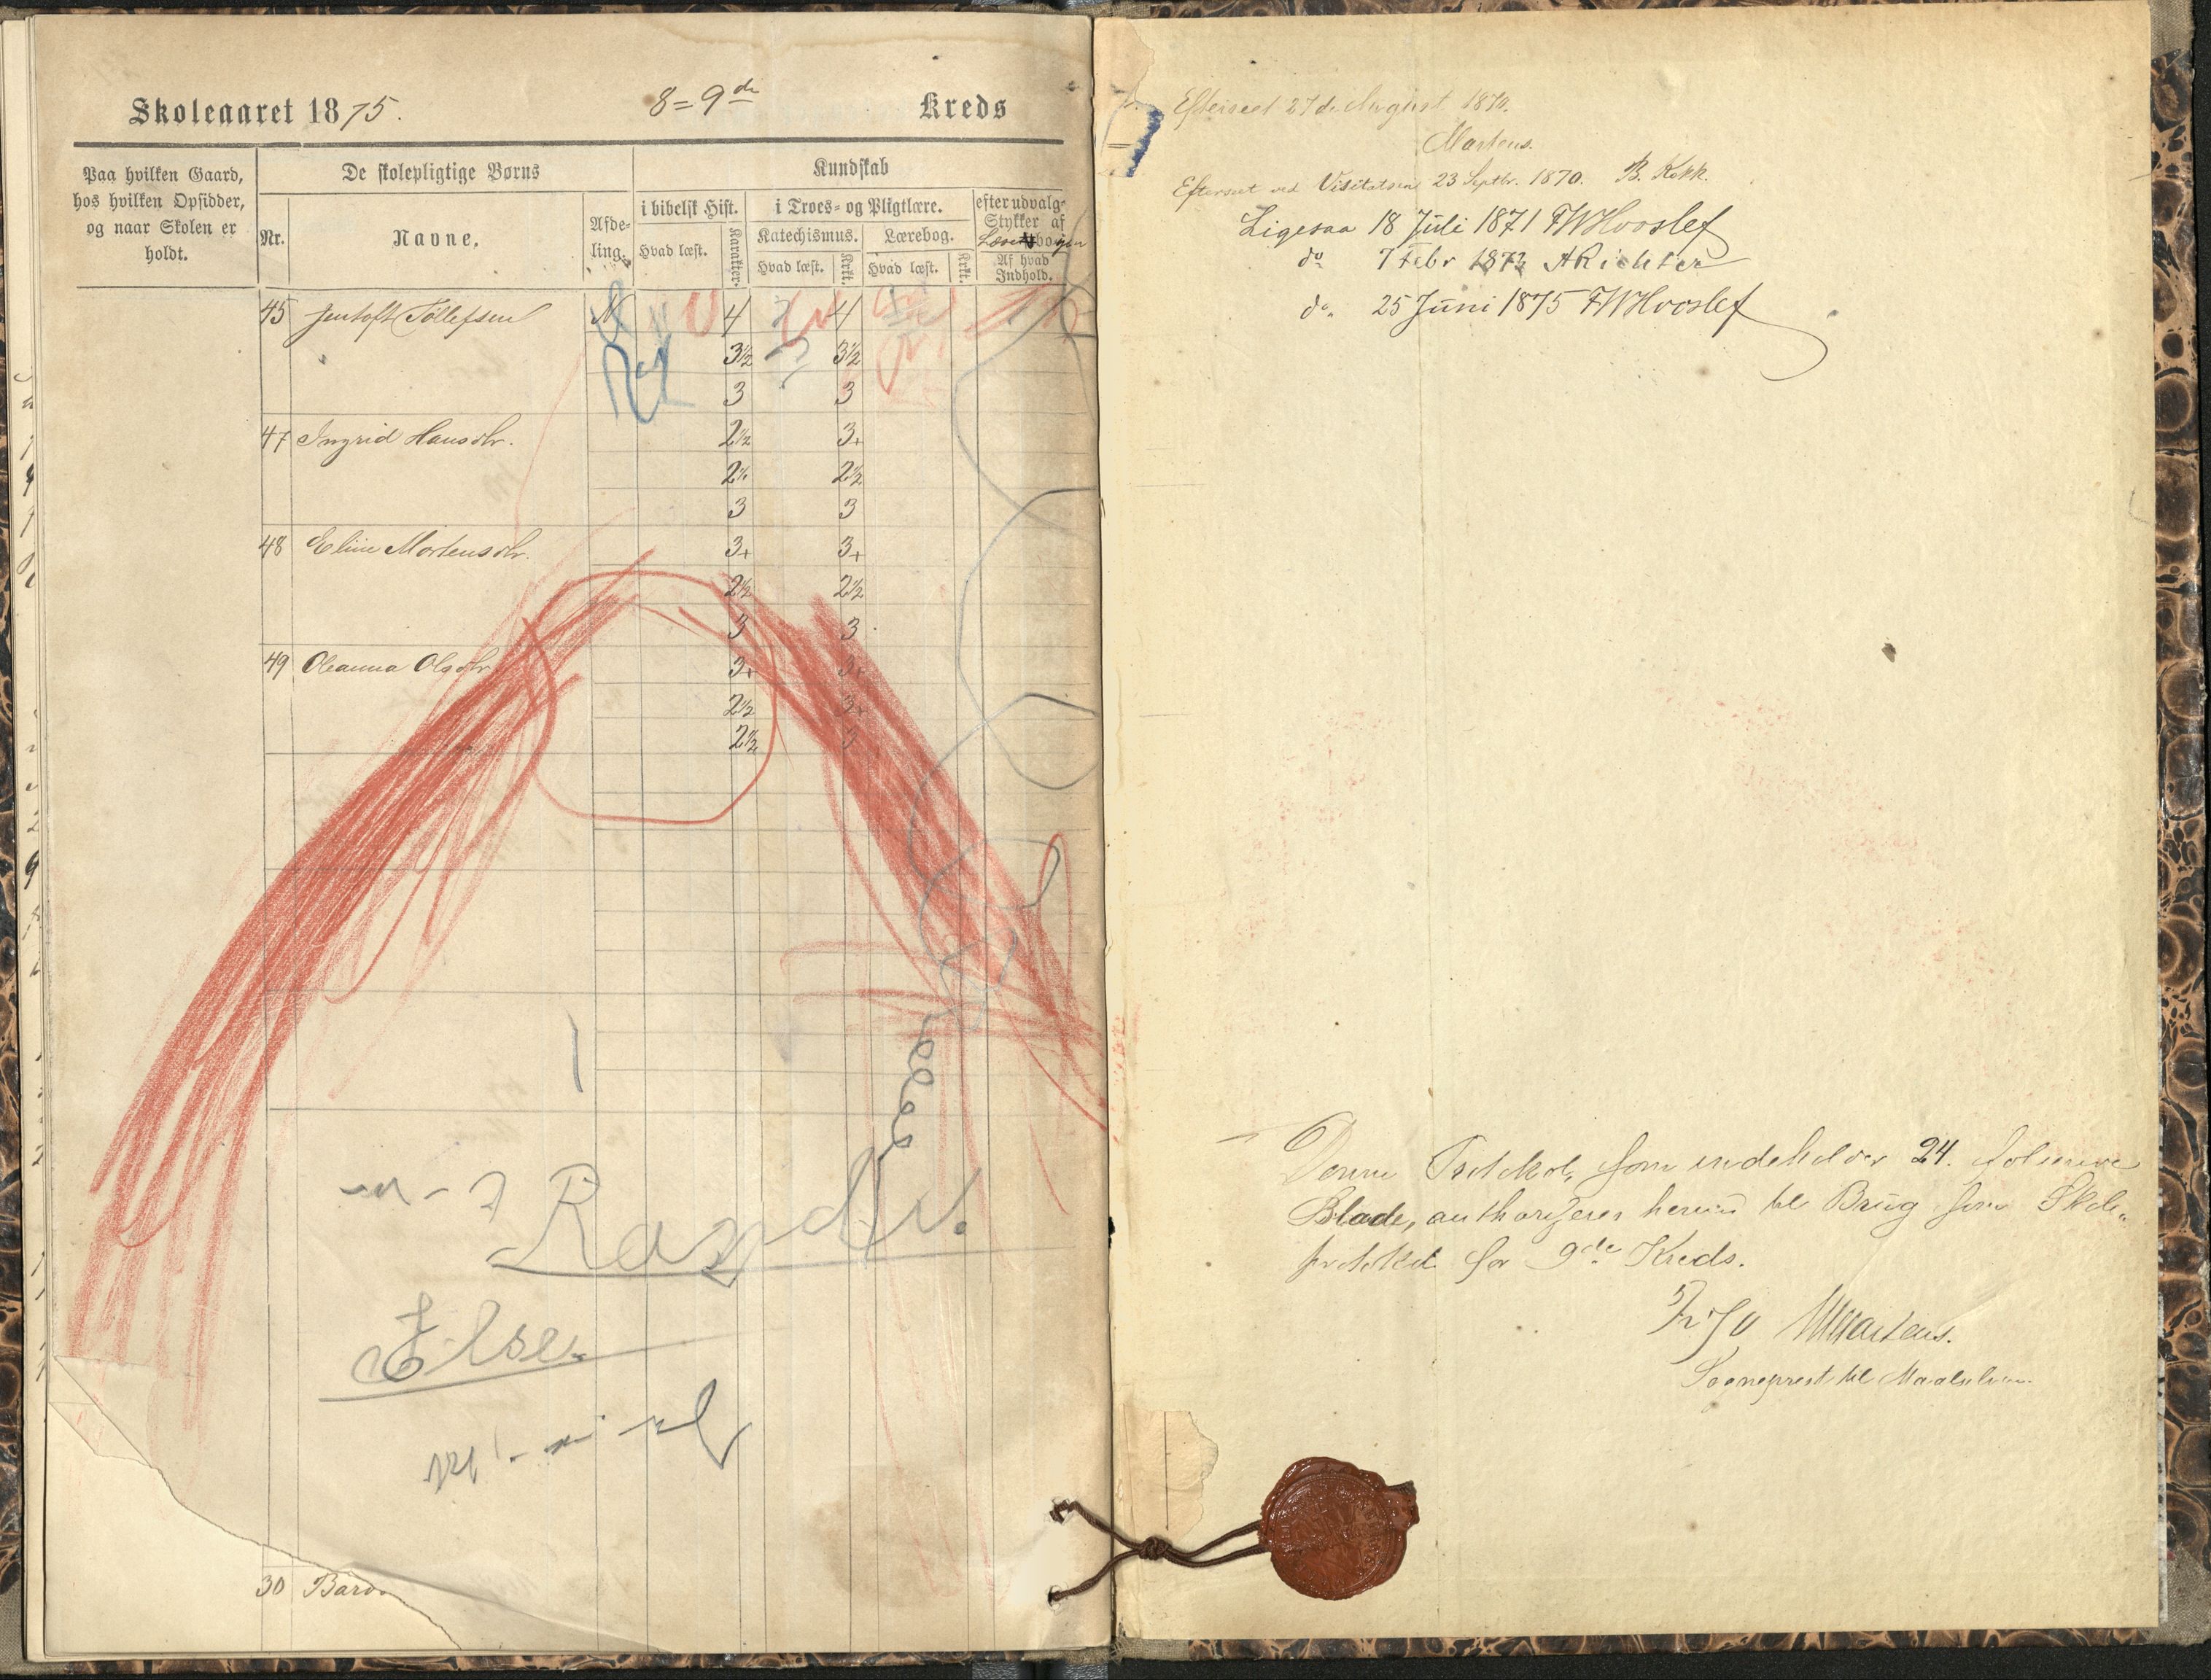 Skoleaaret 1875.
8=9de
Kreds
Paa hvilken Gaard,
hos hvilken Opsidder,
og naar Skolen er
holdt.
De skolepligtige Børns
Nr.
Navne.
Afde-
ling.
Kundskab
i bibelsk Hist.
Hvad læst.
Karakter.
i Troes- og Pligtlære.
Katechismus.
Hvad læst.
Krkt.
Lærebog.
Hvad læst.
Krkt.
efter udvalg-
Stykker af
Af hvad
Indhold.
45 Jentoft Tollefsen 4 4
3½ 3½
3 3
47 Ingrid Hansdtr. 2½ 3+
2½ 2½
3 3
48 Eline Mortensdtr. 3+ 3+
2½ 2½
3 3
49 Oleanna Olsdtr 3+ 3+
2½ 3+
2½ 3
Else
30
Efterseet 27de August 1870.
Martens.
Efterseet ved Visitatsen 23 Septbr. 1870. B. Kokk.
Ligesaa 18 Juli 1871 FWHvoslef
do 7 Febr 1873 ARichter
do. 25 Juni 1875 FWHvoslef
Denne Protokol, som indeholder 24. folierede
Blade, authoriseres herved til Brug som Skole-
protokol for 9de Kreds.
Martens.
Sogneprest til Maalselven.